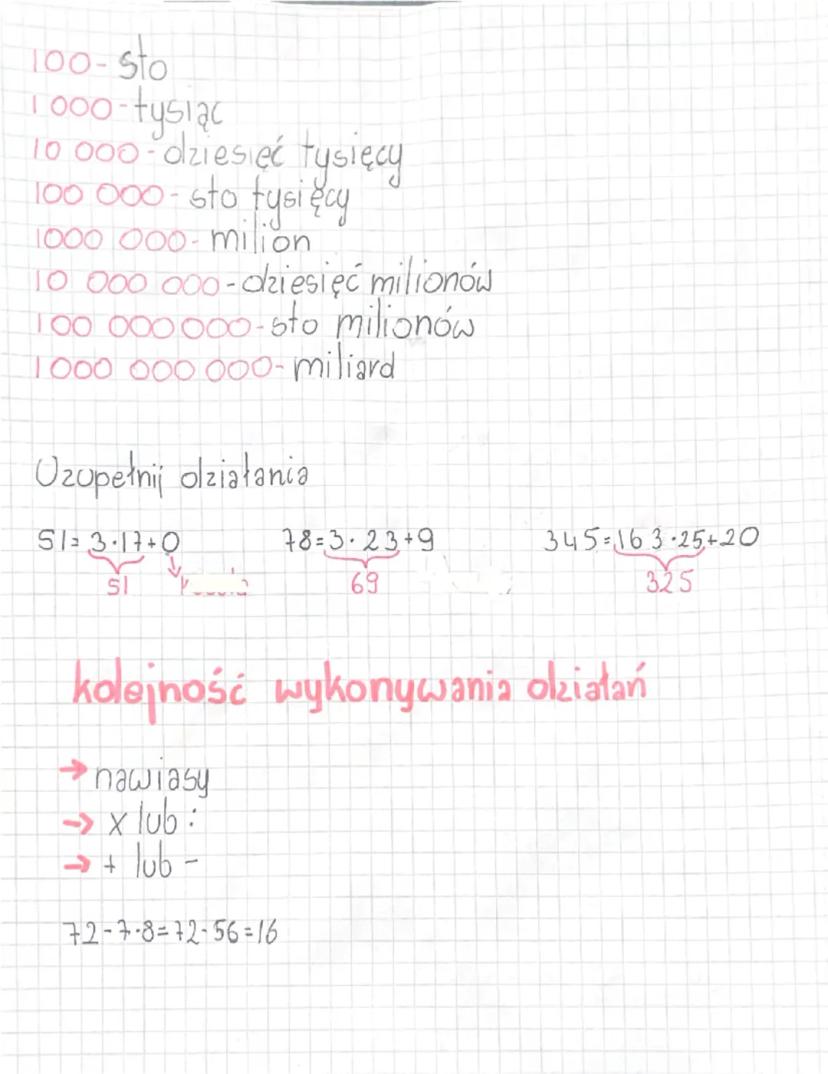 100 - sto
1 000 - tysiąc
10 000 - dziesięć tysięcy
100 000 - sto tysięcy
1000 000 - milion
10 000 000 - dziesięć milionów
100 000 000 - sto milionów
1000 000 000 - miliard
Uzupełnij działania
51=3·17+0 78=3·23+9 345=163·25+20
51 69 325
kolejność wykonywania działań
→ nawiasy
→ x lub :
→ + lub -
72-7·8=72-56=16